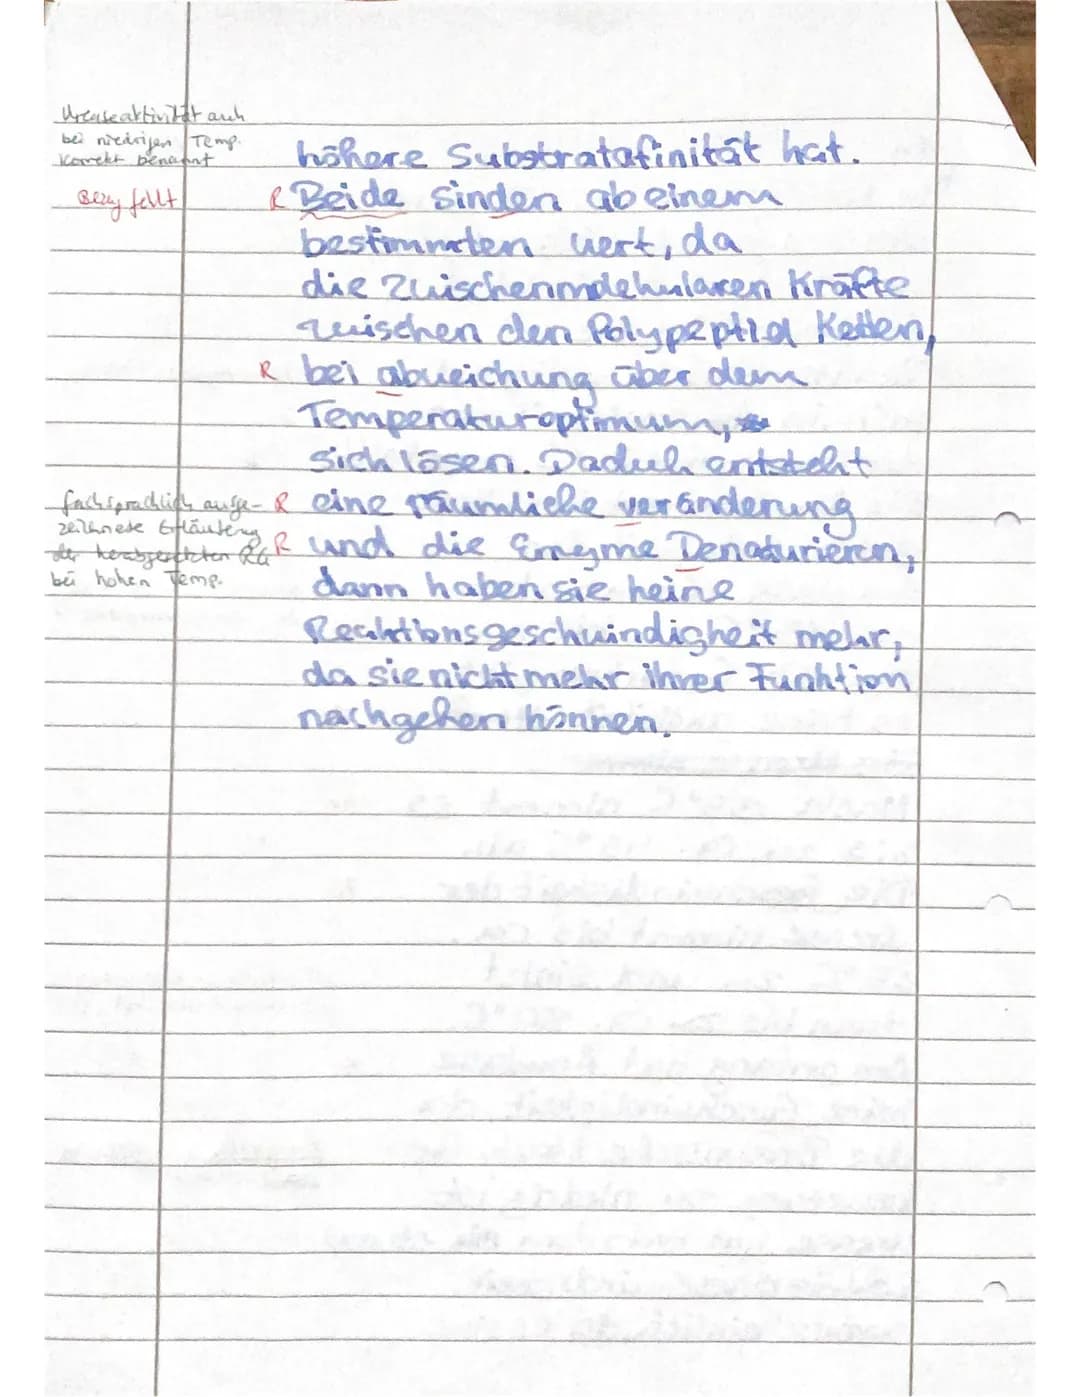 Ureaseaktivität auch
bei niedrigen Temp.
korrekt benannt
höhere Substratafinität hat.
Bezug fehlt
R Beide sinden ab einem
bestimmten wert, da
die zwischenmolekularen Kräfte
zwischen den Polypeptid Ketten,
R bei abweichung über dem
Temperaturoptimum,
sich lösen. Daduch entsteht
fachsprachlich ausge-
R eine räumliche veränderung
zeichnete Erläuterung
R und die Enzyme Denaturieren,
der herabgesetzten RG
bei hohen Temp.
dann haben sie keine
Reaktionsgeschwindigkeit mehr,
da sie nicht mehr ihrer Funktion
nachgehen können.